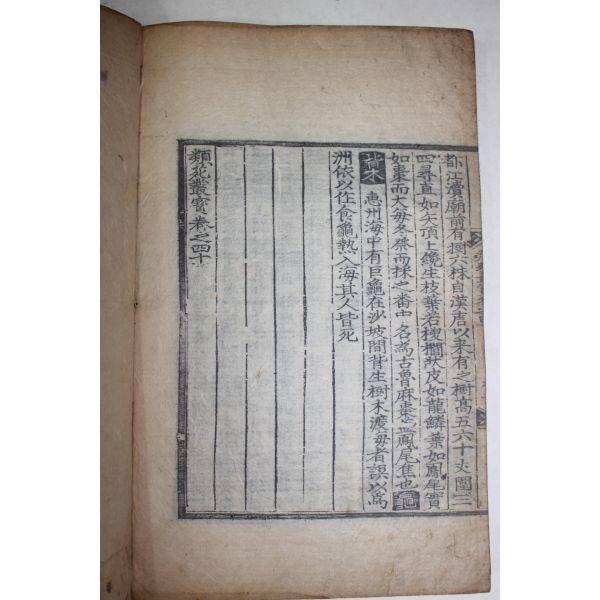 都江瀆廟前有樹六株自漢唐以來有之樹高五六十丈圍三
四尋直如矢頂上纔生枝葉若椶櫚狀皮如龍鱗葉如鳳尾實
如棗而大每冬祭而採之番中名爲古魯麻棗鳳尾焦也 龜
背木 惠州海中有巨龜在沙坡間背生樹木渡海者誤以爲
洲依以作食龜熱入海其人皆死
類苑叢寶卷之四十